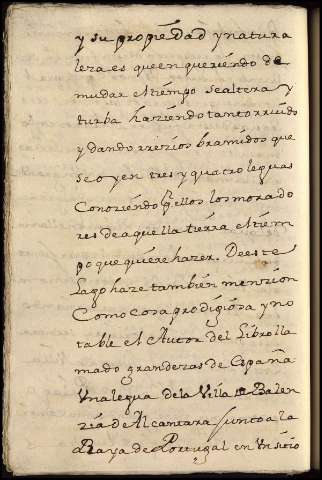 y su propiedad y natura
leza es que en queriendo de
mudar el tiempo se altera y
turba haziendo tanto rruido
y dando rrezios bramidos que
se oyen tres y quatro leguas
Conoziendo por ellos los morado
res de aquella tierra el tiem
po que quiere hazer. De este
Lago haze también menzion
Como cosa prodigiosa y no
table el Autor del Libro lla
mado grandezas de España
Vna legua de la Villa de Balen
zia de Alcantara junto a la
Raya de Portugal en Vn sitio